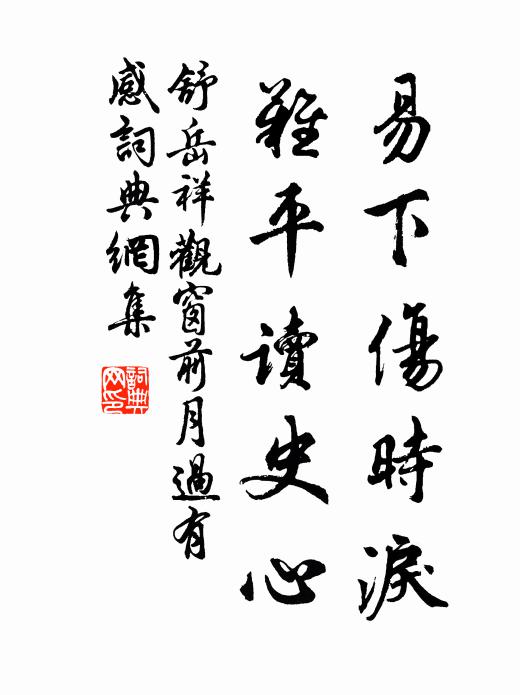 易下傷時淚
難平讀史心
舒岳祥觀窗前月過有
感詞典網集
詞典
网印